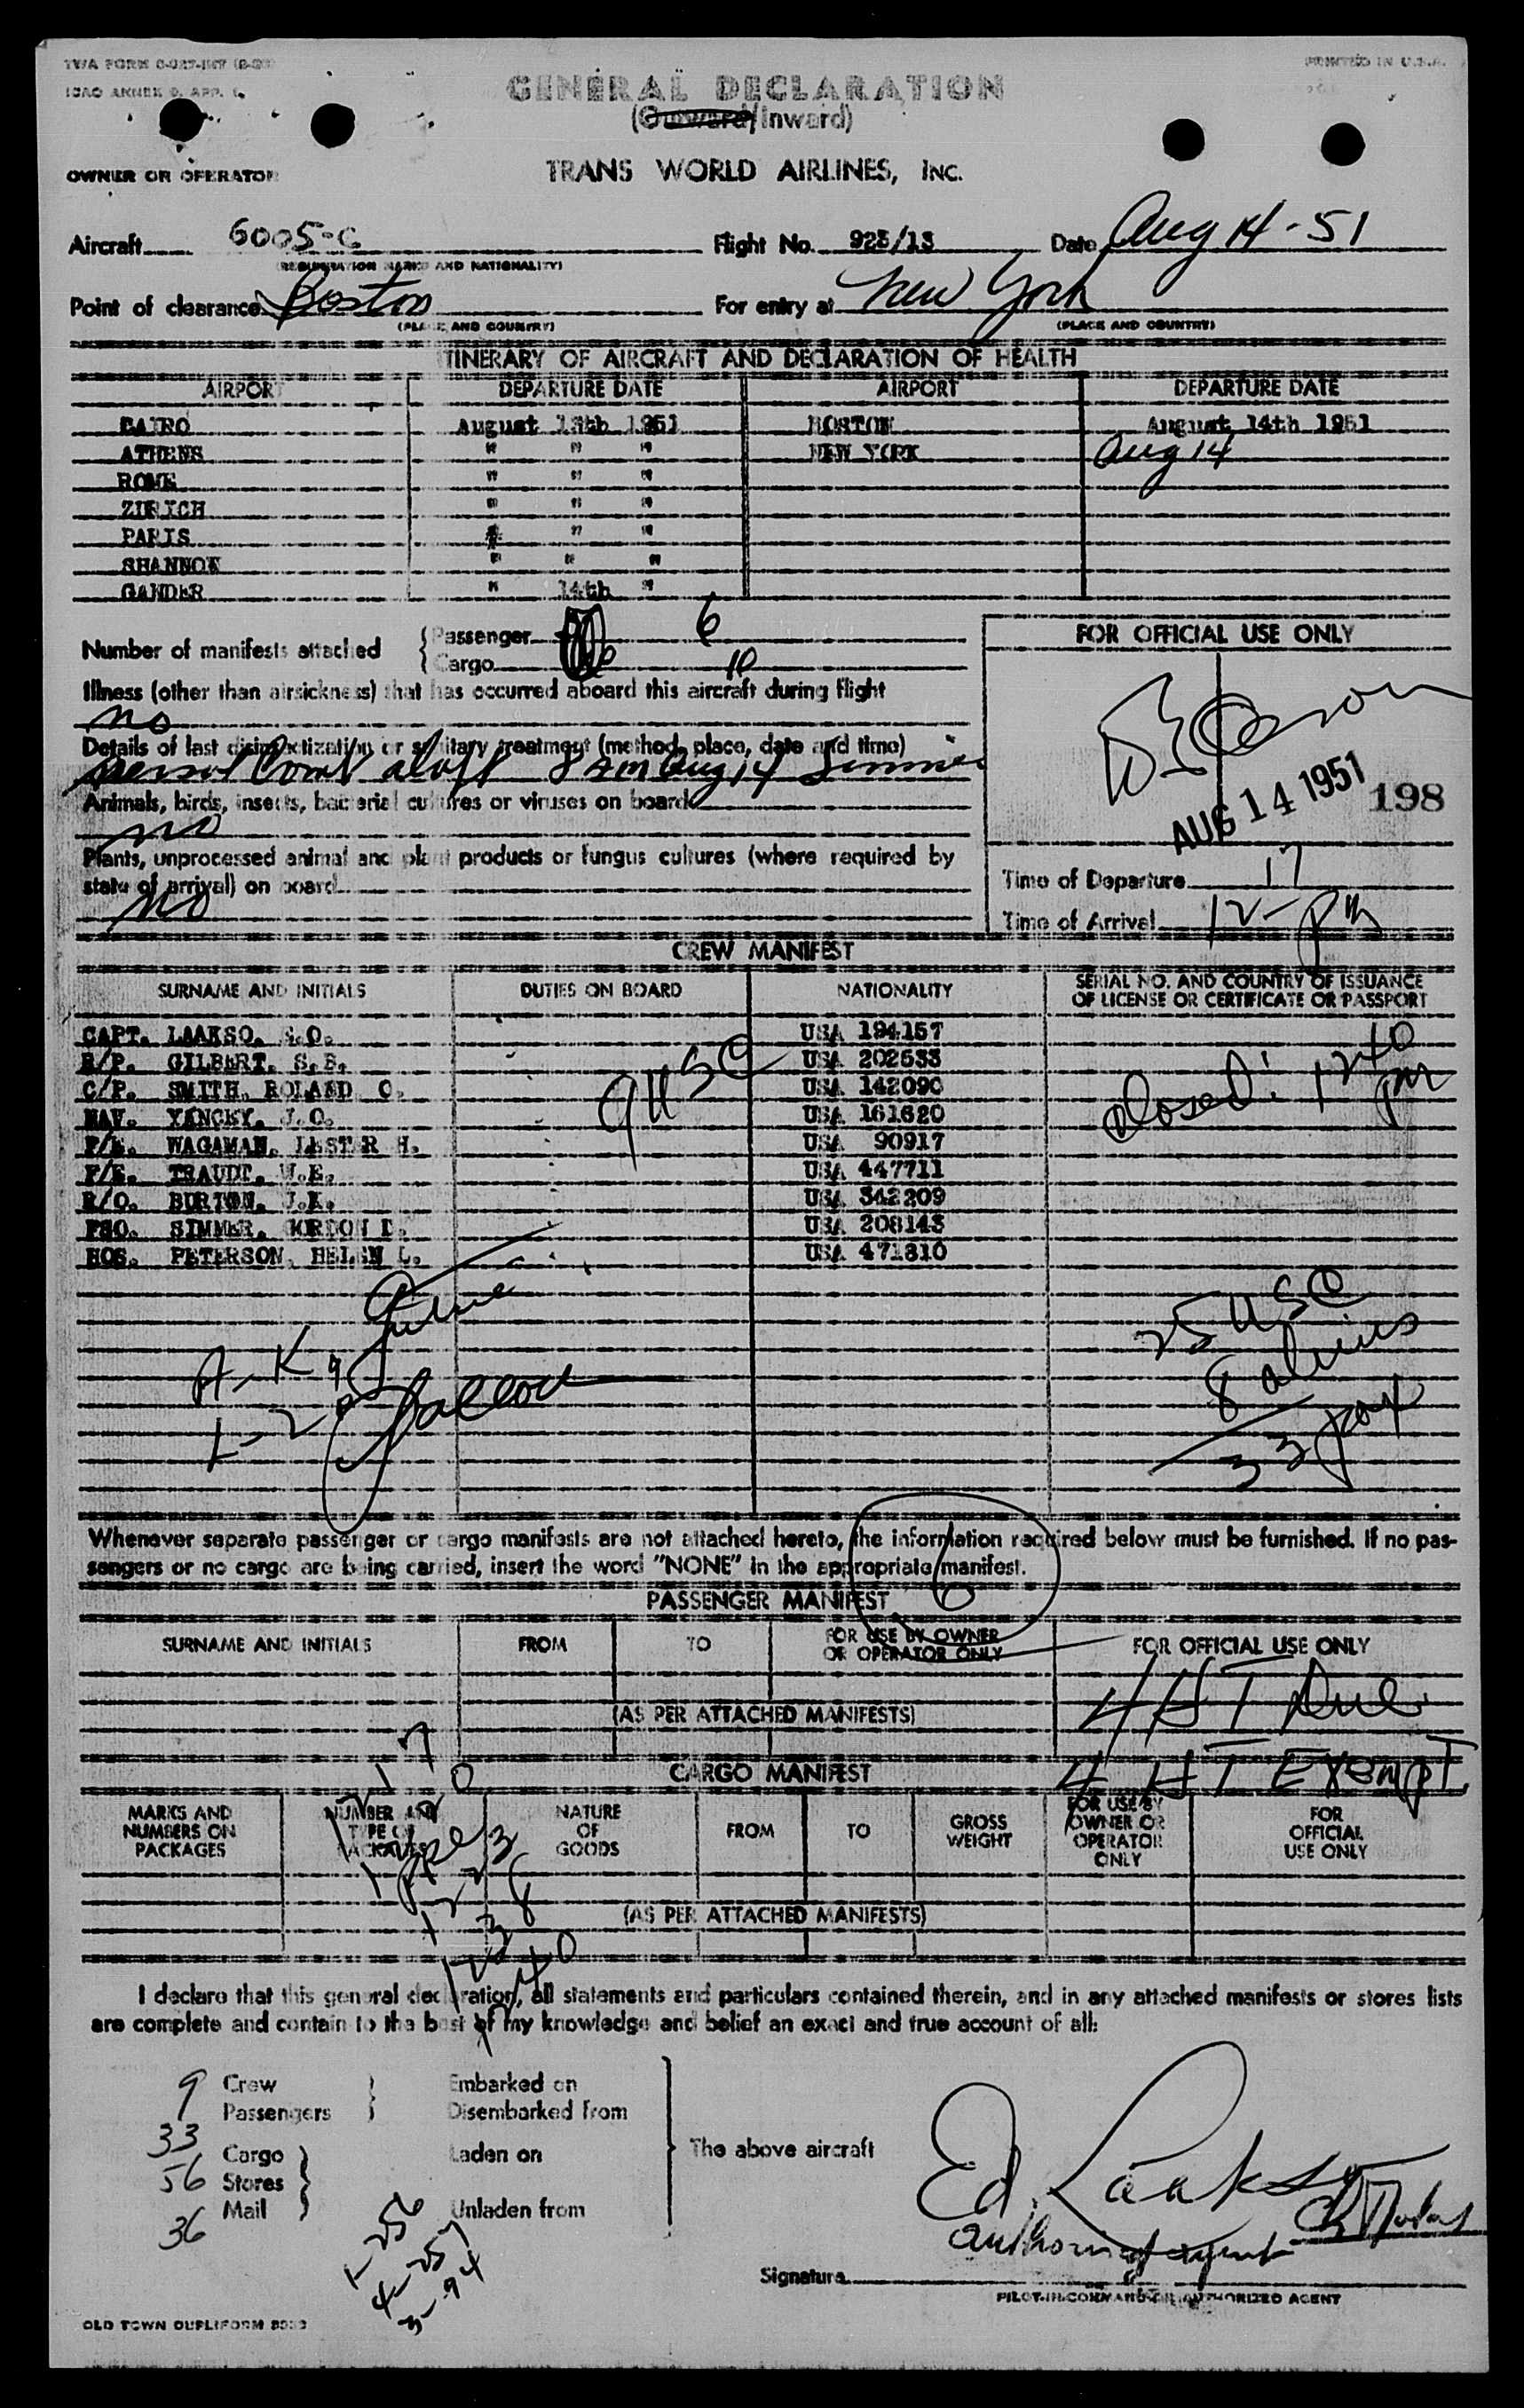 TWA FORM
ICAO ANNEX 9, APP. 1.
PRINTED IN U.S.A.
GENERAL DECLARATION
(Outward/Inward)
OWNER OR OPERATOR
TRANS WORLD AIRLINES, INC.
Aircraft 6005-C
(REGISTRATION MARKS AND NATIONALITY)
Flight No. 923/13
Date Aug 14-51
Point of clearance Boston
(PLACE AND COUNTRY)
For entry at New York
(PLACE AND COUNTRY)
ITINERARY OF AIRCRAFT AND DECLARATION OF HEALTH
AIRPORT DEPARTURE DATE AIRPORT DEPARTURE DATE
CAIRO August 13th 1951 BOSTON August 14th 1951
ATHENS " " " NEW YORK Aug 14
ROME " " "
ZURICH " " "
PARIS " " "
SHANNON " " "
GANDER " 14th "
Number of manifests attached
Passenger 6
Cargo 10
FOR OFFICIAL USE ONLY
Illness (other than airsickness) that has occurred aboard this aircraft during flight
no
Details of last disinsectization or sanitary treatment (method, place, date and time)
aerosol bomb aloft 8 AM Aug 14 Simmer
Animals, birds, insects, bacterial cultures or viruses on board
no
AUG 14 1951
198
Plants, unprocessed animal and plant products or fungus cultures (where required by
state of arrival) on board
no
Time of Departure 17
Time of Arrival 12- PM
CREW MANIFEST
SURNAME AND INITIALS DUTIES ON BOARD NATIONALITY SERIAL NO. AND COUNTRY OF ISSUANCE
OF LICENSE OR CERTIFICATE OR PASSPORT
CAPT. LAAKSO, E.O. USA 194157
R/P. GILBERT, S.S. USA 202533
C/P. SMITH, ROLAND C. USA 142090
NAV. YANCEY, J.O. USA 161620
F/E. WAGAMAN, LESTER H. USA 90917
F/E. TRAUDT, W.E. USA 447711
R/O. BURTON, J.K. USA 342209
PSO. SIMMER, GORDON D. USA 208143
HOS. PETERSON, HELEN L. USA 471810
9 USC
Closed: 12 40
PM
25 USC
8 aliens
33 pax
Whenever separate passenger or cargo manifests are not attached hereto, the information required below must be furnished. If no pas-
sengers or no cargo are being carried, insert the word "NONE" in the appropriate manifest.
6
PASSENGER MANIFEST
SURNAME AND INITIALS FROM TO FOR USE BY OWNER
OR OPERATOR ONLY FOR OFFICIAL USE ONLY
4 HT Due
(AS PER ATTACHED MANIFESTS)
4 HT Exempt
CARGO MANIFEST
MARKS AND
NUMBERS ON
PACKAGES
NUMBER AND
TYPE OF
PACKAGES
NATURE
OF
GOODS
FROM
TO
GROSS
WEIGHT
FOR USE BY
OWNER OR
OPERATOR
ONLY
FOR
OFFICIAL
USE ONLY
(AS PER ATTACHED MANIFESTS)
I declare that this general declaration, all statements and particulars contained therein, and in any attached manifests or stores lists
are complete and contain to the best of my knowledge and belief an exact and true account of all:
9 Crew Embarked on
33 Passengers Disembarked from
56 Cargo Laden on
Stores
36 Mail Unladen from
The above aircraft
1-256
4-257
3-94
Ed. Laakso
authorized agent
Signature
PILOT-IN-COMMAND OR AUTHORIZED AGENT
OLD TOWN DUPLIFORM